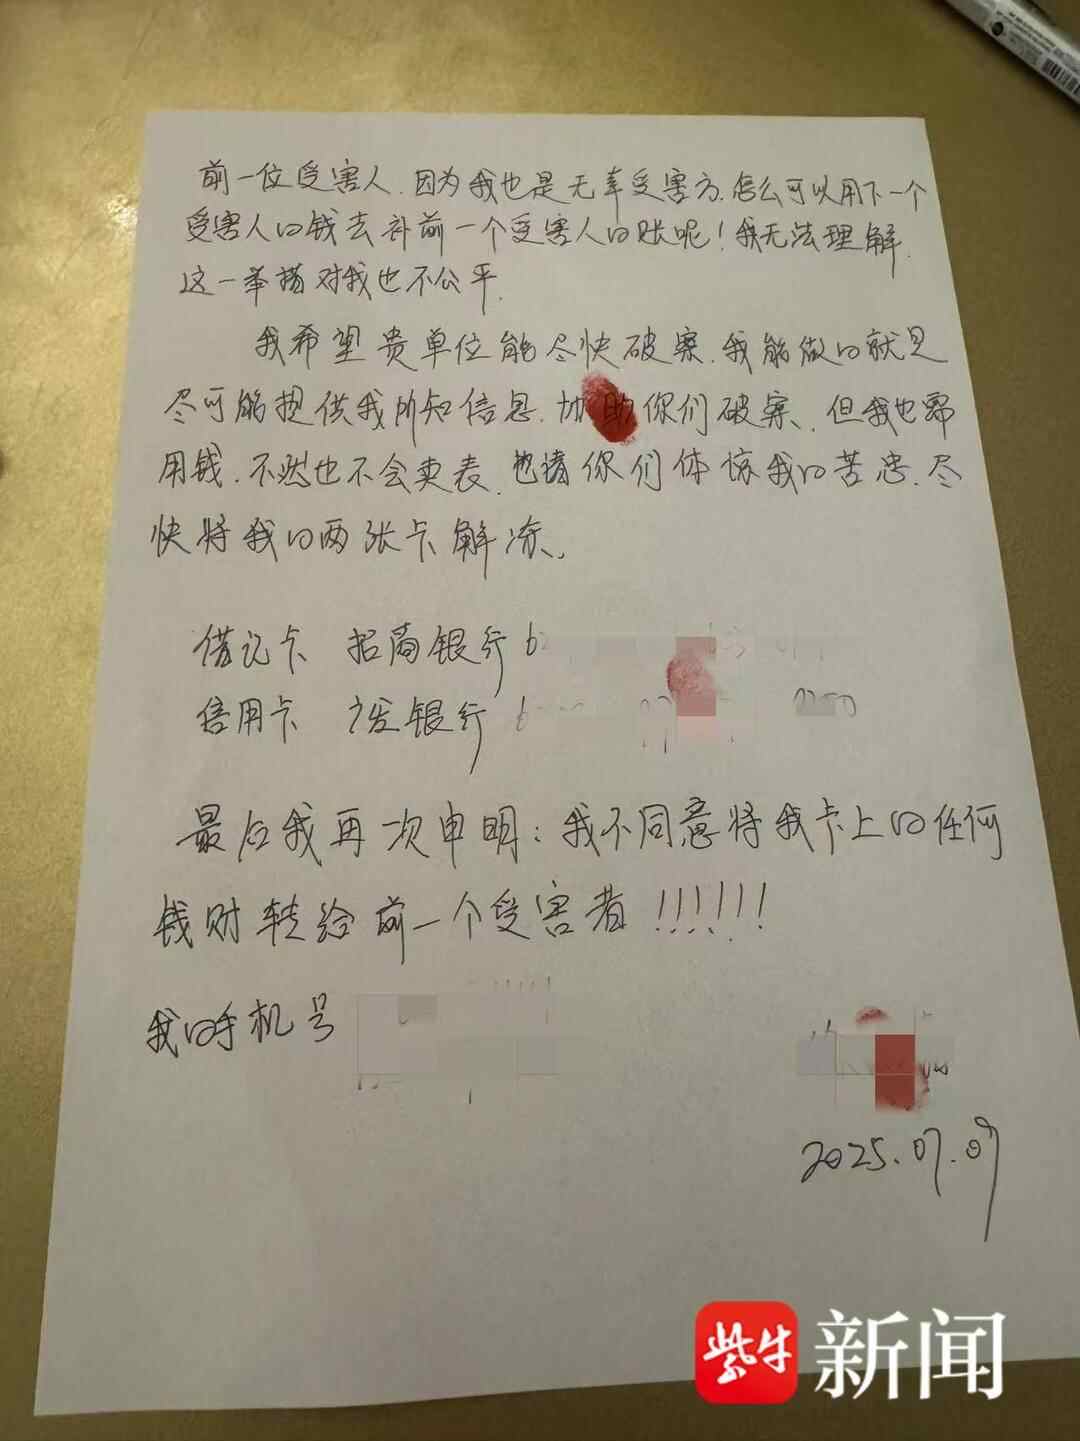 前一位受害人.因为我也是无辜受害方.怎么可以用下一个
受害人的钱去补前一个受害人的账呢！我无法理解.
这一举措对我也不公平.
我希望贵单位能尽快破案.我能做的就是
尽可能提供我所知信息.协助你们破案.但我也需
用钱.不然也不会卖表.也请你们体惊我的苦忠.尽
快将我的两张卡解冻.
借记卡 招商银行 6
信用卡 广发银行 6
最后我再次申明：我不同意将我卡上的任何
钱财转给前一个受害者！！！！！！
我的手机号
2025.07.07
紫牛 新闻